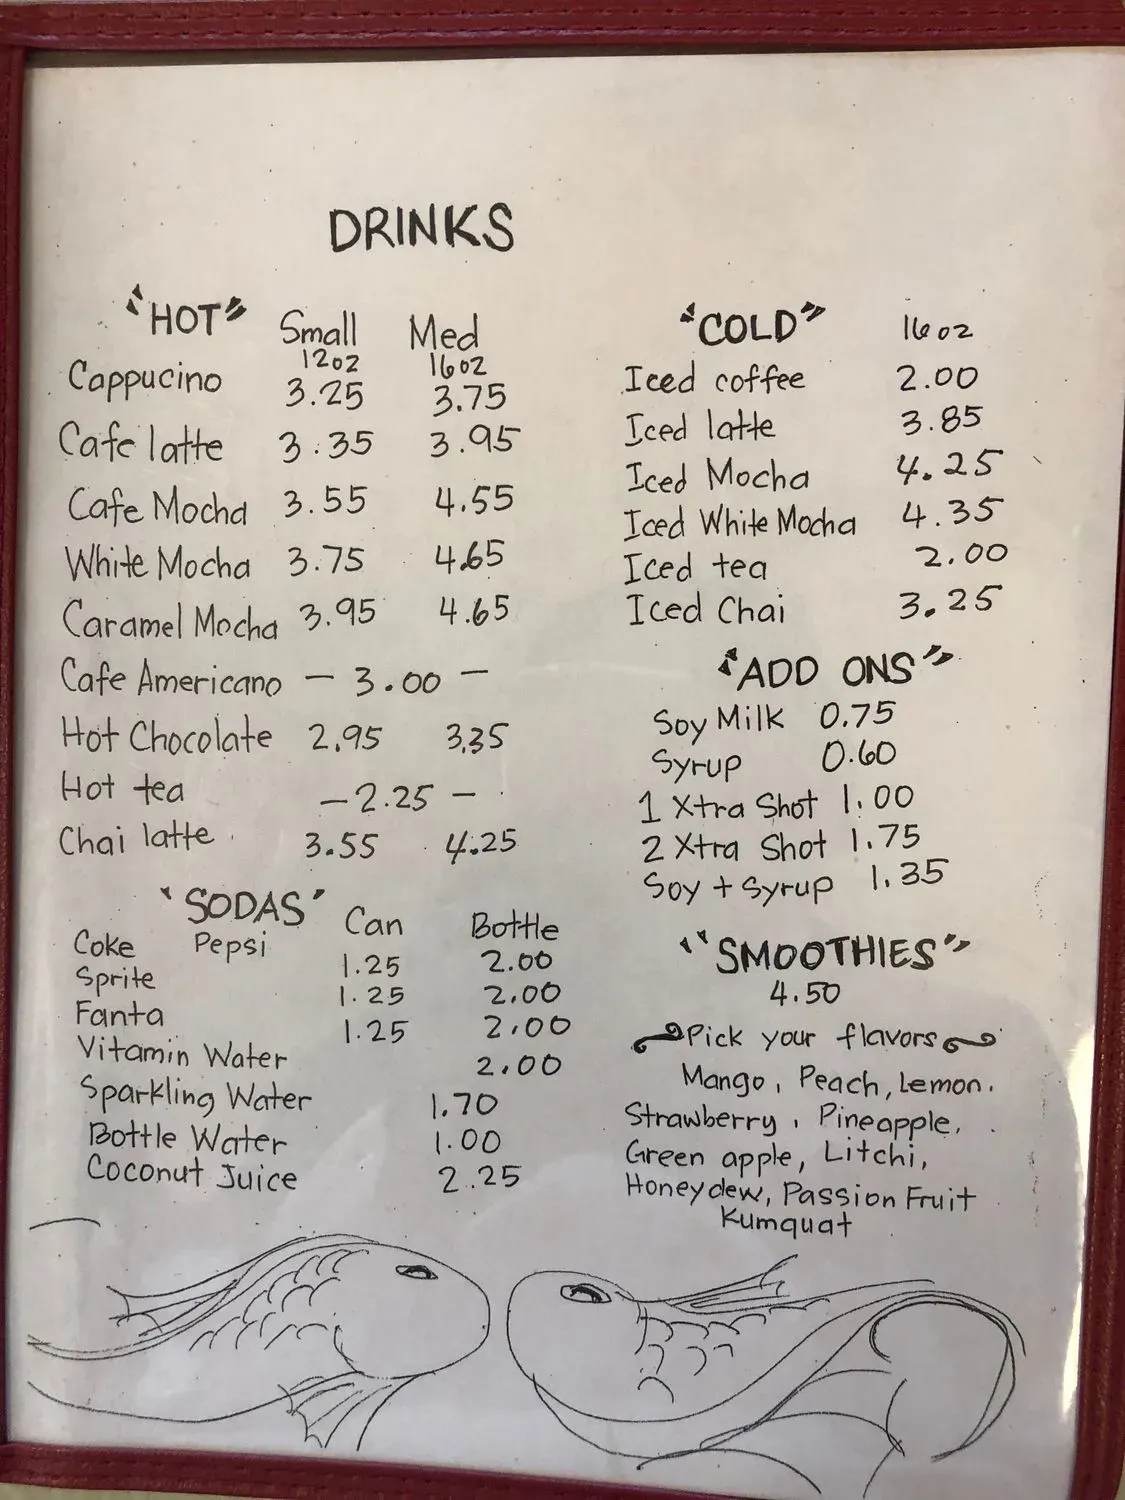 DRINKS
"HOT" Small Med
12oz 16oz
Cappucino 3.25 3.75
Cafe latte 3.35 3.95
Cafe Mocha 3.55 4.55
White Mocha 3.75 4.65
Caramel Mocha 3.95 4.65
Cafe Americano - 3.00 -
Hot Chocolate 2.95 3.35
Hot tea - 2.25 -
Chai latte 3.55 4.25
"SODAS" Can Bottle
Coke Pepsi 1.25 2.00
Sprite 1.25 2.00
Fanta 1.25 2.00
Vitamin Water 2.00
Sparkling Water 1.70
Bottle Water 1.00
Coconut Juice 2.25
"COLD" 16oz
Iced coffee 2.00
Iced latte 3.85
Iced Mocha 4.25
Iced White Mocha 4.35
Iced tea 2.00
Iced Chai 3.25
"ADD ONS"
Soy Milk 0.75
Syrup 0.60
1 Xtra Shot 1.00
2 Xtra Shot 1.75
Soy + Syrup 1.35
"SMOOTHIES"
4.50
Pick your flavors
Mango, Peach, Lemon.
Strawberry, Pineapple,
Green apple, Litchi,
Honeydew, Passion Fruit
Kumquat